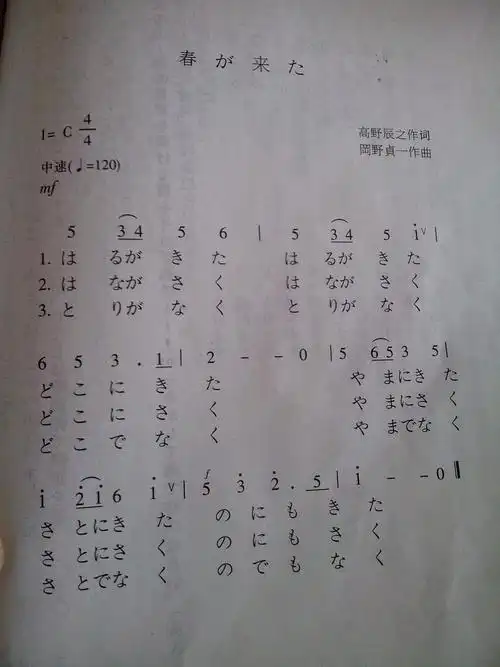 春が来た
1= C 4/4
高野辰之作词
中速(♩=120)
岡野貞一作曲
mf
5 3 4 5 6 | 5 3 4 5 i ∨ |
1. は るが き た は るが き た
2. は なが さ く は なが さ く
3. と りが な く と りが な く
6 5 3 . 1 | 2 - - 0 | 5 6 5 3 5 |
ど こ に き た や まにき た
ど こ に さ く や まにさ く
ど こ で な く や までな く
i 2 i 6 i ∨ | f 5 3 2 . 5 | i - - 0 ‖
さ とにき た の に も き た
さ とにさ く の に も さ く
さ とでな く の で も な く